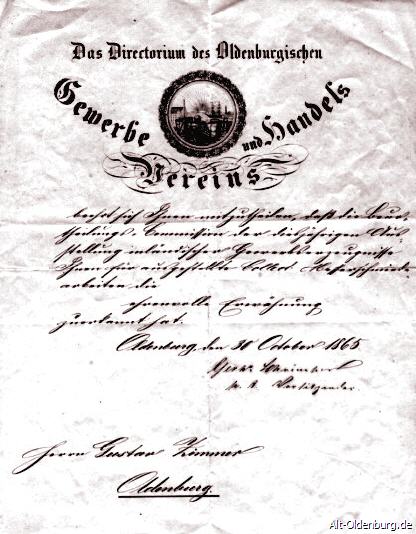 Das Directorium des Oldenburgischen
Gewerbe und Handels
Vereins
beehrt sich Ihnen mitzutheilen, daß die Beur-
theilungs-Commission der diesjährigen Aus-
stellung inländischer Gewerbserzeugnisse
Ihnen für ausgestellte Messerschmiede-
arbeiten die
ehrenvolle Erwähnung
zuerkannt hat.
Oldenburg, den 30 October 1865
Vorsitzender
Herrn Gustav Zimmer
Oldenburg.
Alt-Oldenburg.de